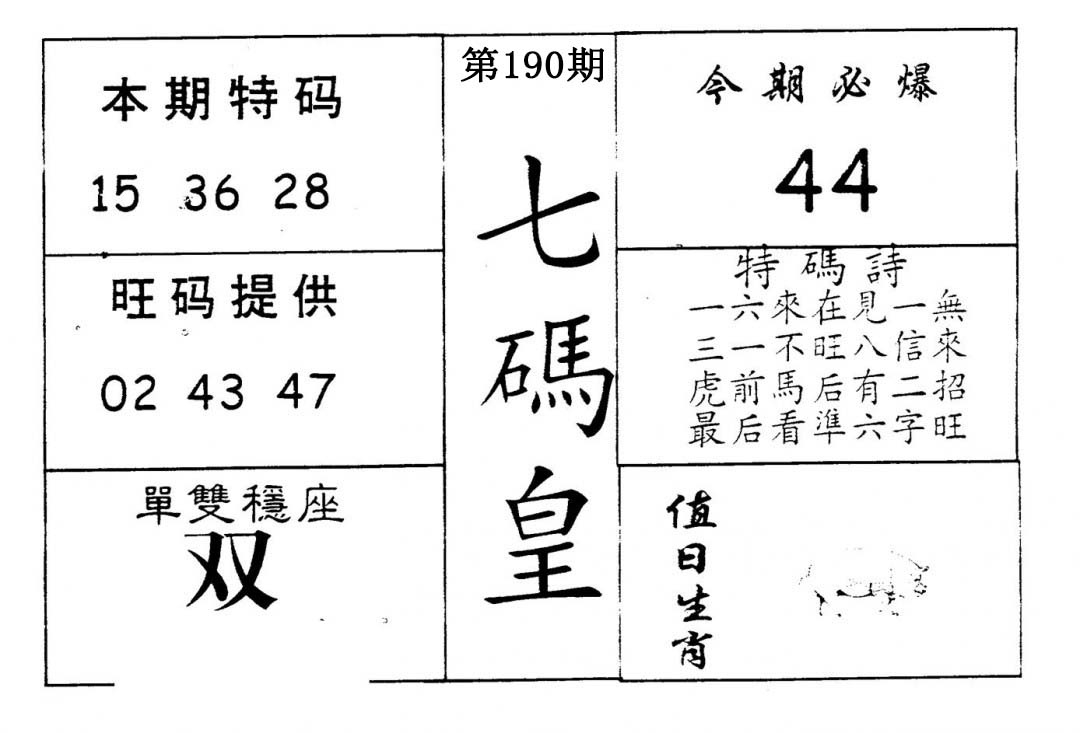 本期特码
15 36 28
旺码提供
02 43 47
單雙穩座
双
第190期
七碼皇
今期必爆
44
特碼詩
一六來在見一無
三一不旺八信來
虎前馬后有二招
最后看準六字旺
值日生肖